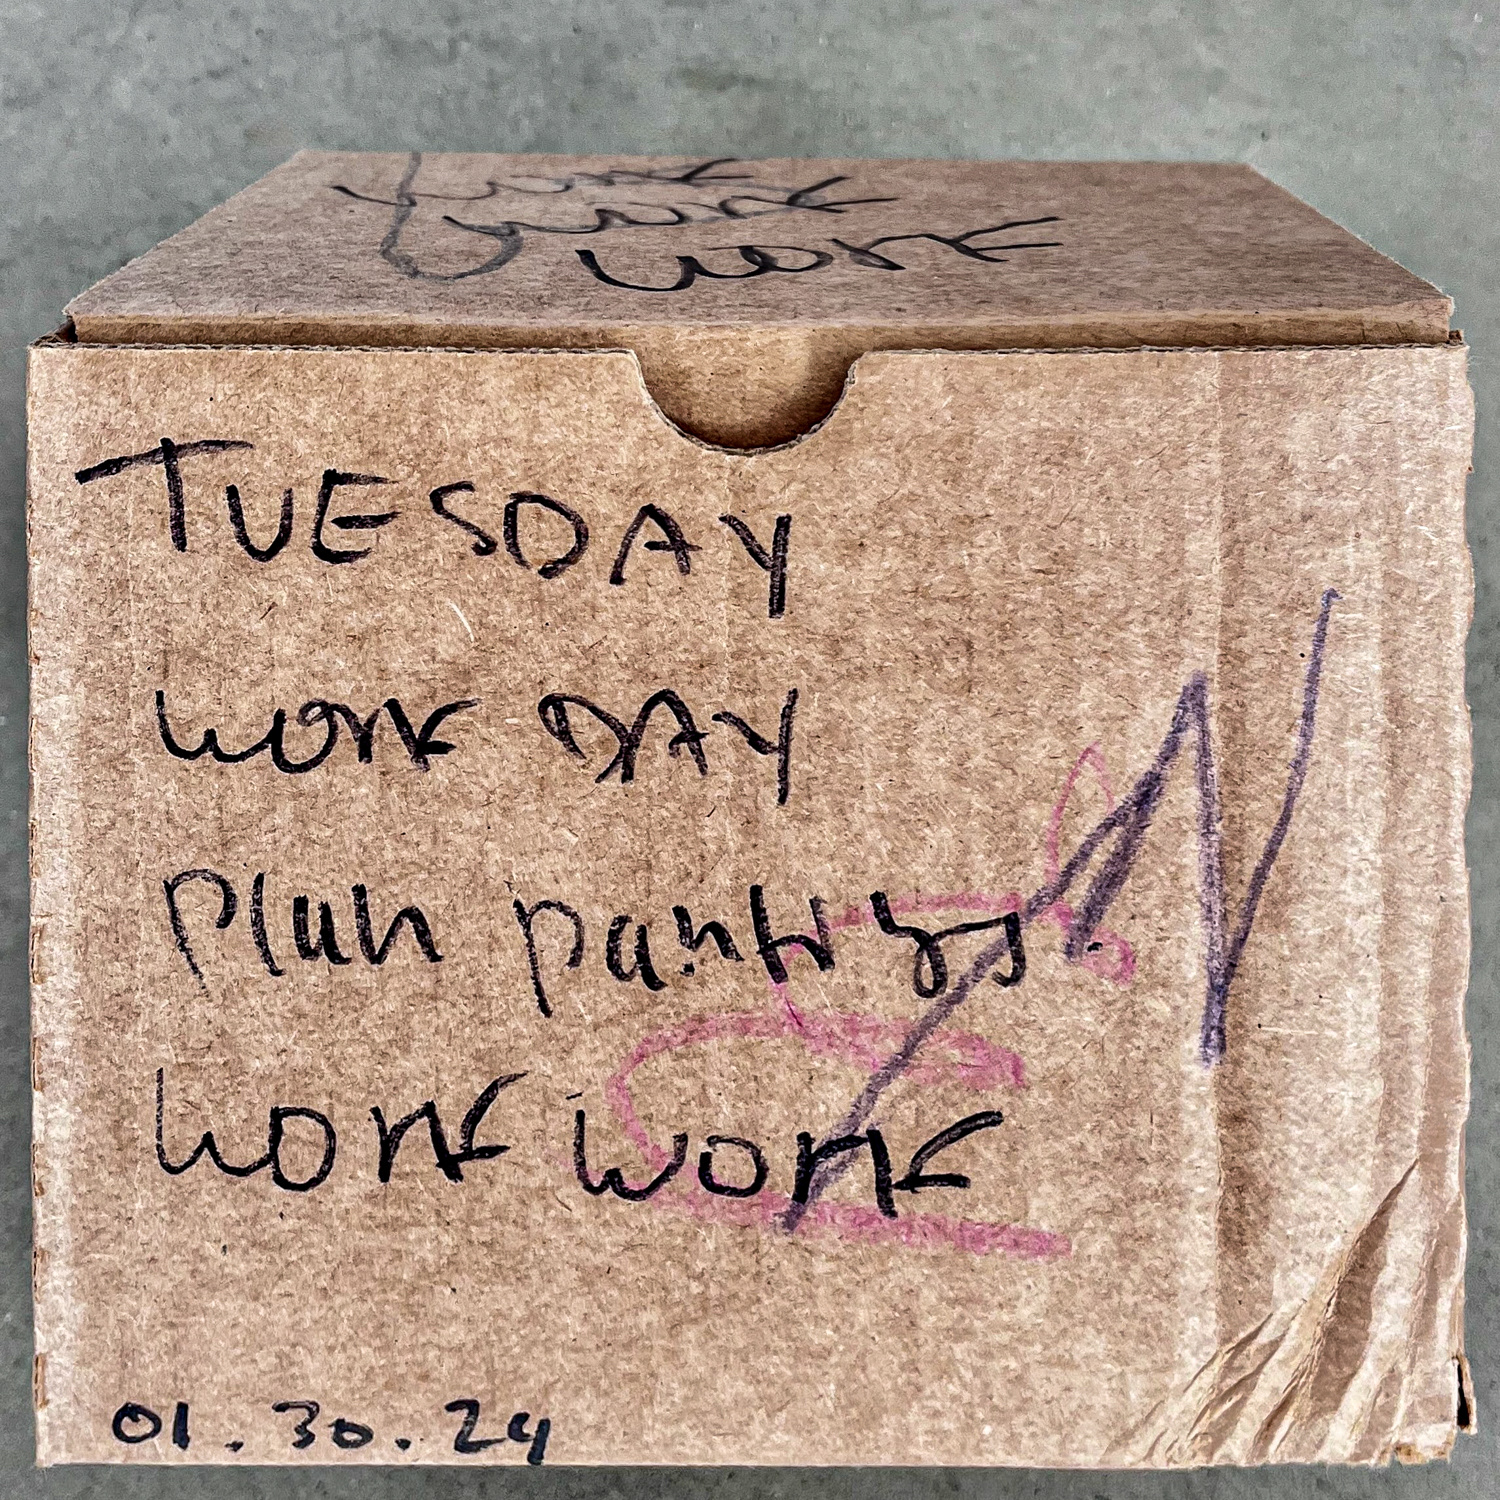 work
work
work
TUESDAY
work DAY
Plan pantrys.
work work
01.30.24